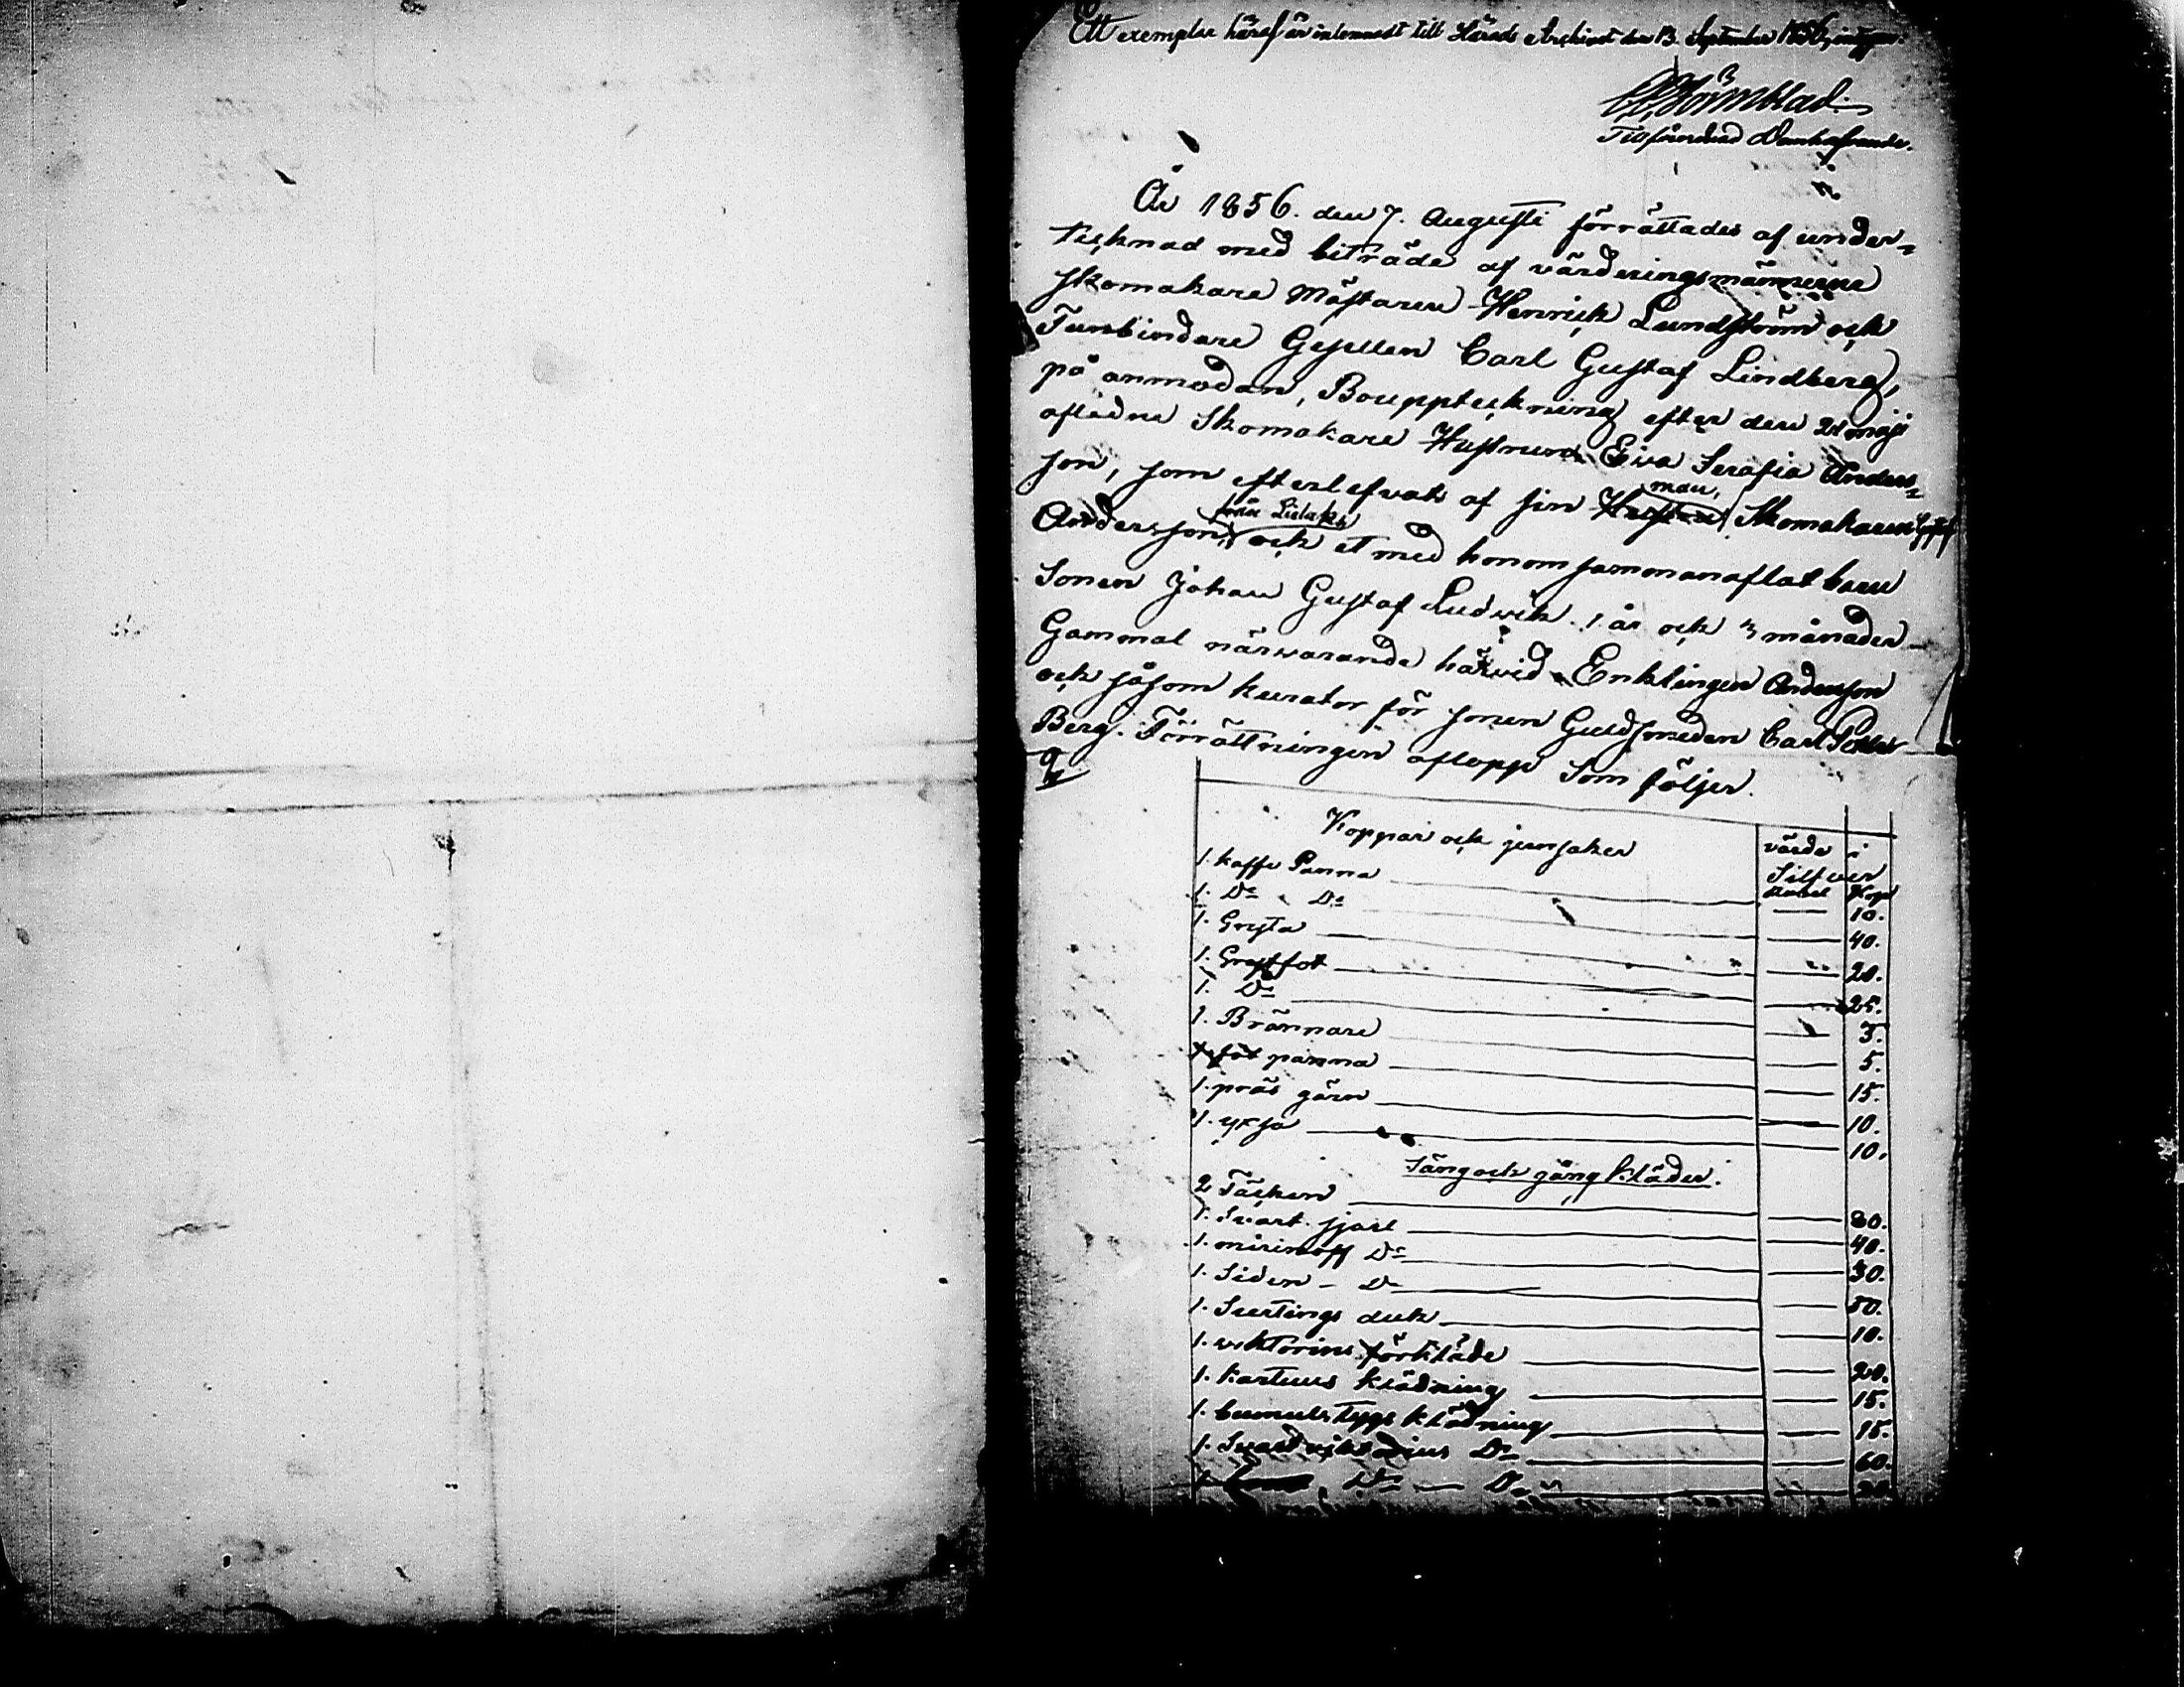 Ett exemplar häraf är inlemnadt till Härads Archivet den 13 September 1856, intygar.
Tillförordnad Domhafvande.
År 1856. den 7. Augusti förrättades af under-
tecknad med biträde af värderingsmännerne
Skomakare Mästaren Henrick Lundström och
Tunbindare Gesellen Carl Gustaf Lindberg,
på anmodan, Bouppteckning efter den 21 maji
aflidne Skomakare Hustrun Eva Serafia Anders-
son, som efterlefvats af sin man, Skomakaren Gustaf
Andersson, och et med honom sammanaflat barn
Sonen Johan Gustaf Ludvik 1 år och 3 månader
Gammal närvarande härvid Enklingen Andersson
och såsom kurator för sonen Guldsmeden Carl Petter
Berg. Förrättningen aflopp Som följer.
Koppar och jernsaker värde i
Silfver
Rubel Kop
1. kaffe Panna 10.
1. Do Do 40.
1. Gryta 20.
1. Grytfot 25.
1. Do 3.
1. Brännare 5.
fot panna 15.
1. präs järn 10.
1. yxsa 10.
Säng och gång kläder.
2 Täcken 80.
1. Svart sjarl 40.
1. mirinoff Do 30.
1. Siden - Do 50.
1. Sertings duk 10.
1. viktorins förkläde 20.
1. Kartuns klädning 15.
1. bumuls tygs klädning 15.
1. Svart viktorius Do 60.
1. Do Do 20.